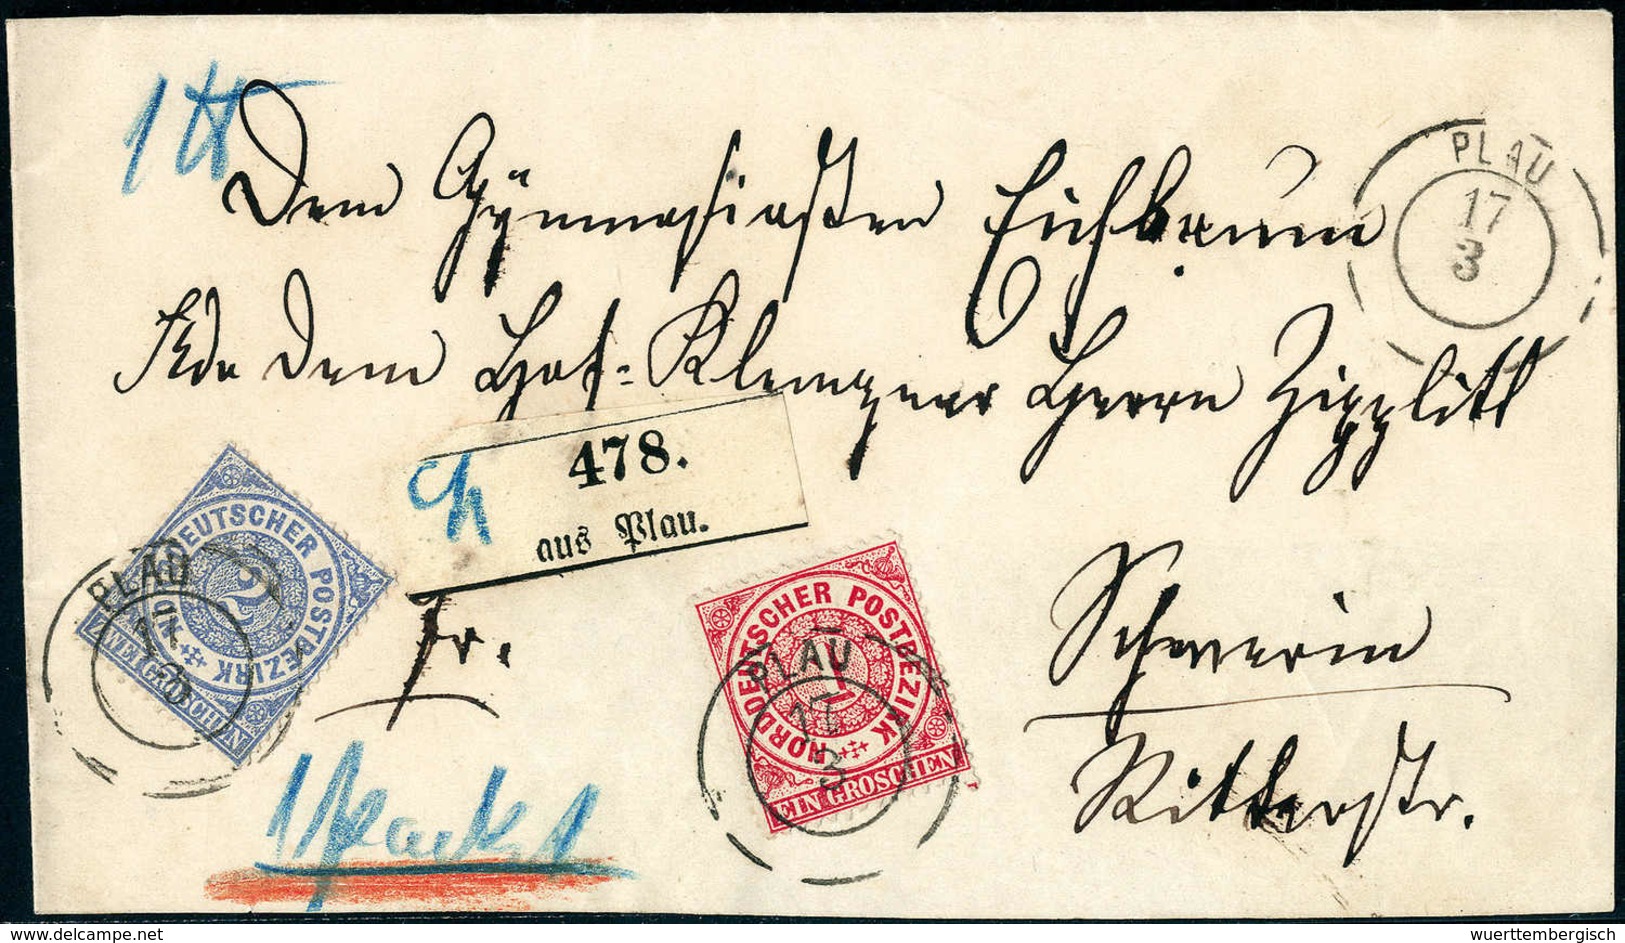 Dem Gymnasiasten Eichbaum
Adr. Dem Hof-Klempner Herrn Zipplitt
PLAU
17
3
478.
aus Plau.
fr.
Schwerin
Ritterstr.
NORDDEUTSCHER POSTBEZIRK
2
ZWEI GROSCHEN
PLAU
17
3
NORDDEUTSCHER POSTBEZIRK
1
EIN GROSCHEN
PLAU
17
3
1 Packet
www.delcampe.net
wuerttembergisch